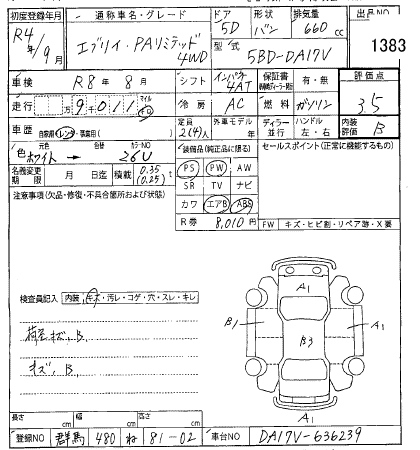 初度登録年月 通称車名・グレード ドア 形状 排気量 出品NO
R4年9月 エブリィ・PAリミテッド 4WD 5D バン 660cc
型式 5BD-DA17V 1383
車検 R8年8月 シフト インパネ 4AT 保証書 有・無 評価点
走行 万9011 マイル 冷房 AC 燃料 ガソリン 3.5
車歴 自家用・レンタ・事業用( ) 定員 2(4)人 外車モデル 年 ディーラー 並行 ハンドル 左・右 内装評価 B
色 元色 ホワイト → 色替 カラーNO 26U 装備品(純正品に限る) セールスポイント(正常に機能するもの)
名義変更期限 月 日迄 積載 0.35 (0.25)t PS PW AW
SR TV ナビ
注意事項(欠品・修復・不具合箇所および状態) カワ エアB ABS
R券 8,010円 FW キズ・ヒビ割・リペア跡・X要
検査員記入 内装、キズ・汚レ・コゲ・穴・スレ・キレ
荷室キズ、B、
キズ、B、
A1
B1
B3
A1
A1
長さ cm 幅 cm 高さ cm
登録NO 群馬 480 ね 81-02 車台NO DA17V-636239